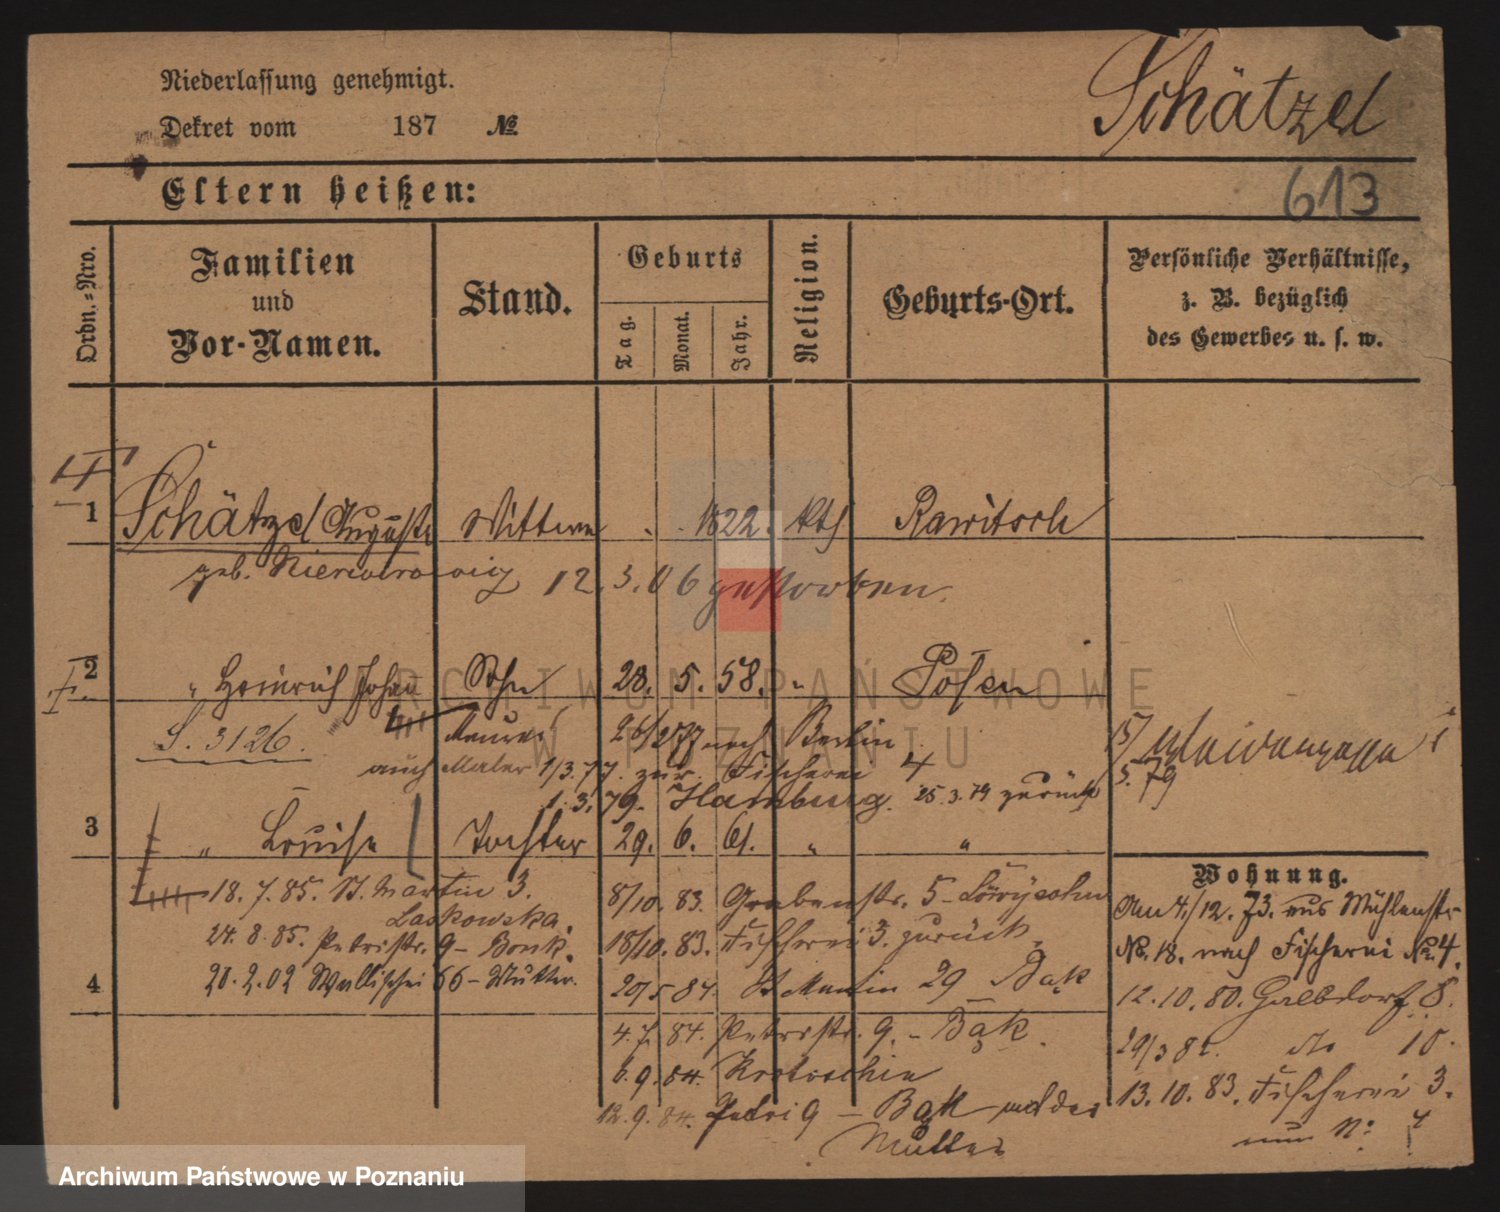 Niederlassung genehmigt.
Schätzel
Dekret vom 187 №
613
Eltern heißen:
Ordn.=Nro.
Familien
und
Vor-Namen.
Stand.
Geburts
Tag.
Monat.
Jahr.
Religion.
Geburts-Ort.
Persönliche Verhältnisse,
z. B. bezüglich
des Gewerbes u. s. w.
1 Schätzel Auguste Wittwe 1822. kth Rawitsch
geb. 12.3.06 gestorben.
2 " Heinrich Johan Sohn 28. 5. 58. " Posen
S. 3126. Maurer 26/2 77 nach Berlin
auch Maler 1/3.77. zur. Fischerei 4
1.3.79. Hamburg. 25.3.79 zurück
3 " Louise Tochter 29. 6. 61. " "
18.7.85. St. Martin 3.
Laskowska.
24.8.85. Petristr. 9 - Bonk.
4 20.2.02 Wallischei 66 - Mutter.
8/10. 83. Grabenstr. 5 - Löwysohn
18/10. 83. Fischerei 3. zurück
20/5 84. St Martin 29 Bąk
4.7. 84. Petristr. 9. - Bąk.
6.9.84. Krotoschin
12.9.84. Petri 9 - Bąk und der
Mutter
Wohnung.
Am 4./12. 73. aus Mühlenstr.
No. 18. nach Fischerei No. 4.
12.10.80. 8.
29/3 82. do 10.
13.10.83. Fischerei 3.
nun No 4
ARCHIWUM PAŃSTWOWE
W POZNANIU
Archiwum Państwowe w Poznaniu